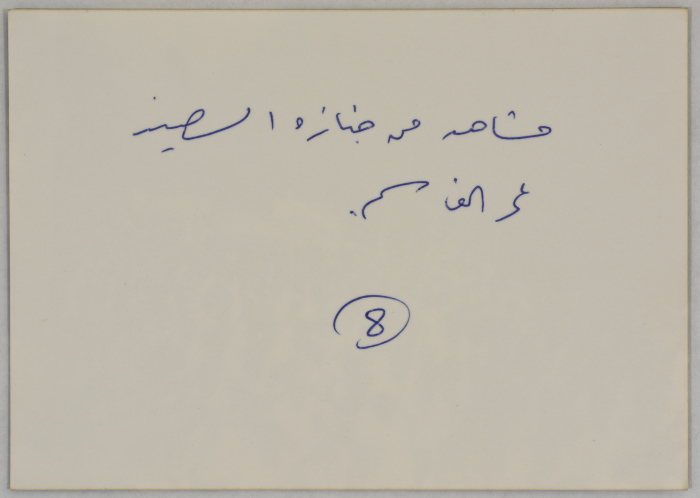 مشاهد من جنازه الشهيد
عمر القاسم.
8